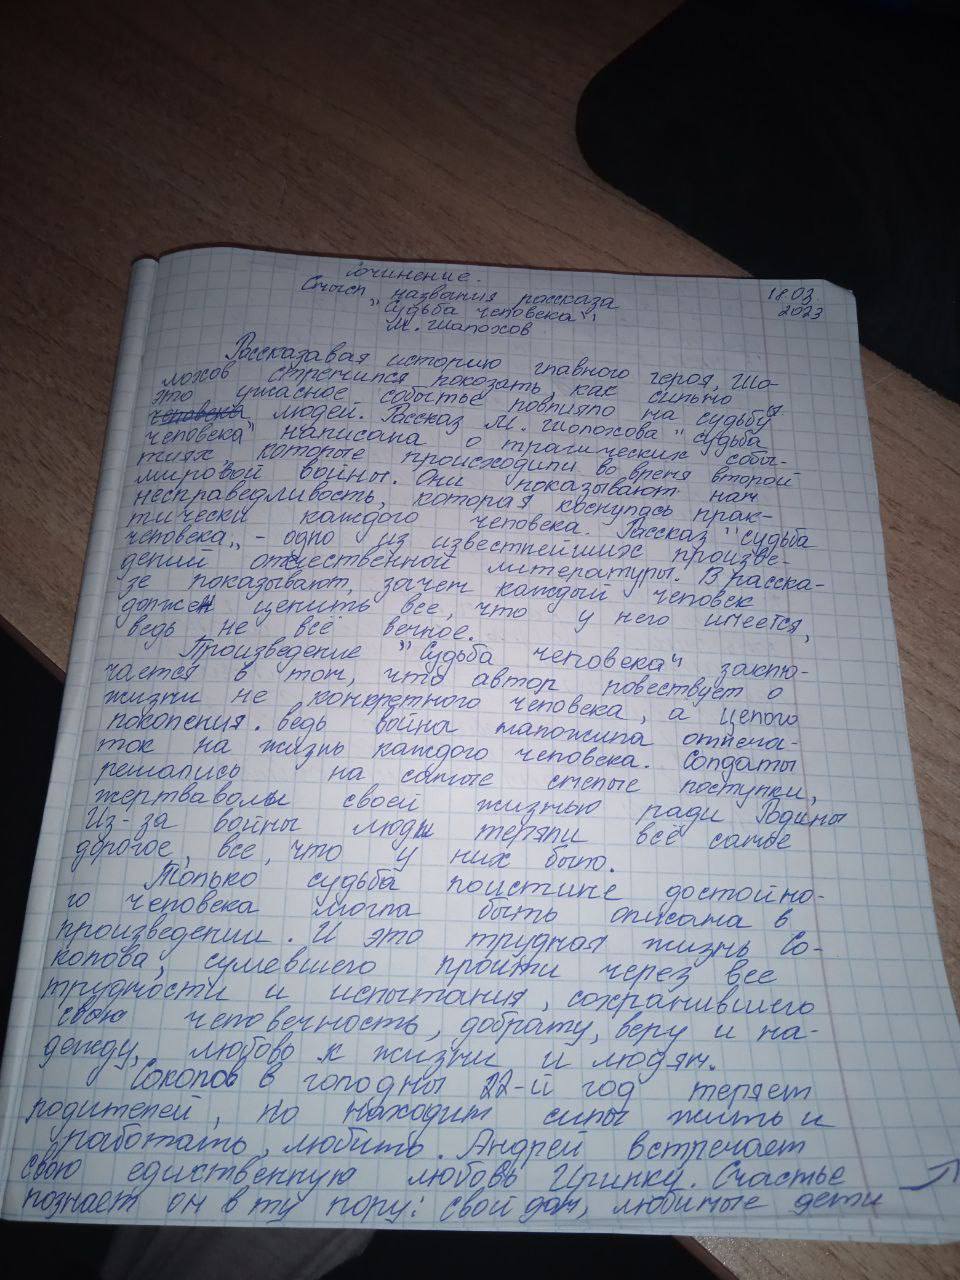 Сочинение.
18.03
2023
Смысл названия рассказа
"Судьба человека"
М. Шолохов
Рассказавая историю главного героя, Шо-
лохов стремился показать, как сильно
это ужасное событье повлияло на судьбу
человека людей. Рассказ М. Шолохова "Судьба
человека" написана о трагических собы-
тиях, которые происходили во время второй
мировой войны. Они показывают нам
несправедливость, которая коснулась прак-
тически каждого человека. Рассказ "Судьба
человека" - одно из известнейших произве-
дений отечественной литературы. В расска-
зе показывают, зачем каждый человек
должен ценить все, что у него имеется,
ведь не всё вечное.
Произведение "Судьба человека" заклю-
чается в том, что автор повествует о
жизни не конкретного человека, а целого
поколения. ведь война наложила отпеча-
ток на жизнь каждого человека. Солдаты
решались на самые смелые поступки,
жертвавалы своей жизнью ради Родины
Из-за войны люди теряли всё самое
дорогое, все, что у них было.
Только судьба поистине достойно-
го человека могла быть описана в
произведении. И это трудная жизнь Со-
колова, сумевшего пройти через все
трудности и испытания, сохранившего
свою человечность, доброту, веру и на-
дежду, любово к жизни и людям.
Соколов в голодны 22-й год теряет
родителей, но находит силы жить и
работать, любить. Андрей встречает
свою едиственную любовь Иринку. Счастье
познает он в ту пору: свой дом, любимые дети